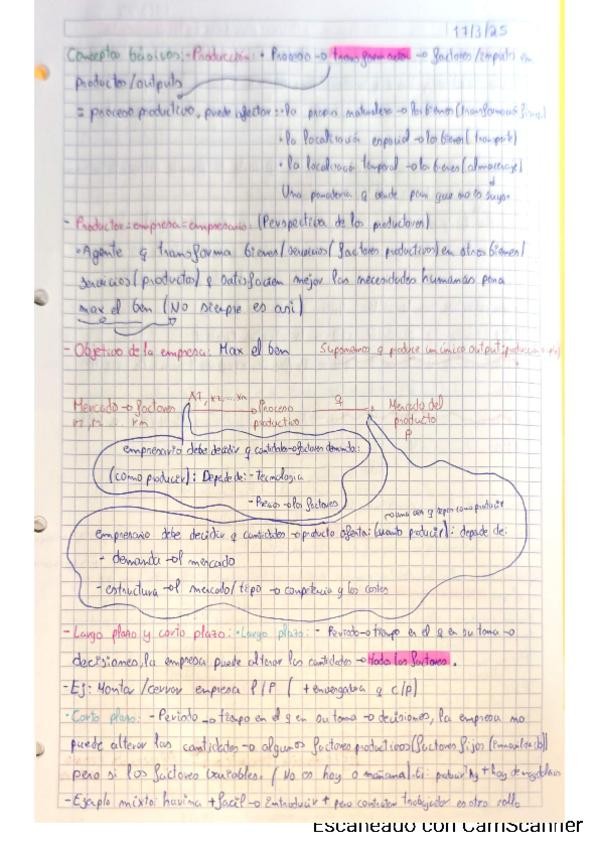 17/3/25
Conceptos básicos: - Producción: • Proceso → transformación → factores/inputs en
productos/outputs
= proceso productivo, puede afectar: • la propia naturaleza → los bienes (transformación física)
• la localización espacial → los bienes (transporte)
• la localización temporal → los bienes (almacenaje)
Una panadería q vende pan que no es suyo.
- Productor = empresa = empresario: (Perspectiva de los productores)
• Agente q transforma bienes/servicios (factores productivos) en otros bienes/
servicios (productos) q satisfacen mejor las necesidades humanas para
max el ben (NO siempre es así)
- Objetivo de la empresa: Max el ben Suponemos q produce un único output
Mercado → factores x1, x2 ... xn Proceso q Mercado del
r1, r2 ... rn productivo producto
p
empresario debe decidir q cantidades → factores demanda:
(como producir): Depende de: - Tecnología
- Precios → los factores
→ una vez q sepas como producir
empresario debe decidir q cantidades → producto oferta: (cuanto producir): depende de:
- demanda → el mercado
- estructura → el mercado/tipo → competencia y los costes
- Largo plazo y corto plazo: • Largo plazo: - Periodo → tiempo en el q en su toma →
decisiones, la empresa puede alterar las cantidades → todos los factores.
- Ej: Montar/cerrar empresa l/p ( + envergadura q c/p)
• Corto plazo: - Periodo → tiempo en el q en su toma → decisiones, la empresa no
puede alterar las cantidades → algunos factores productivos (factores fijos
pero si los factores variables. (No es hoy o mañana). Ej: producir + hoy de magdalenas
- Ejemplo mixto: harina + fácil → introducir + pero contratar trabajador es otro rollo
Escaneado con CamScanner